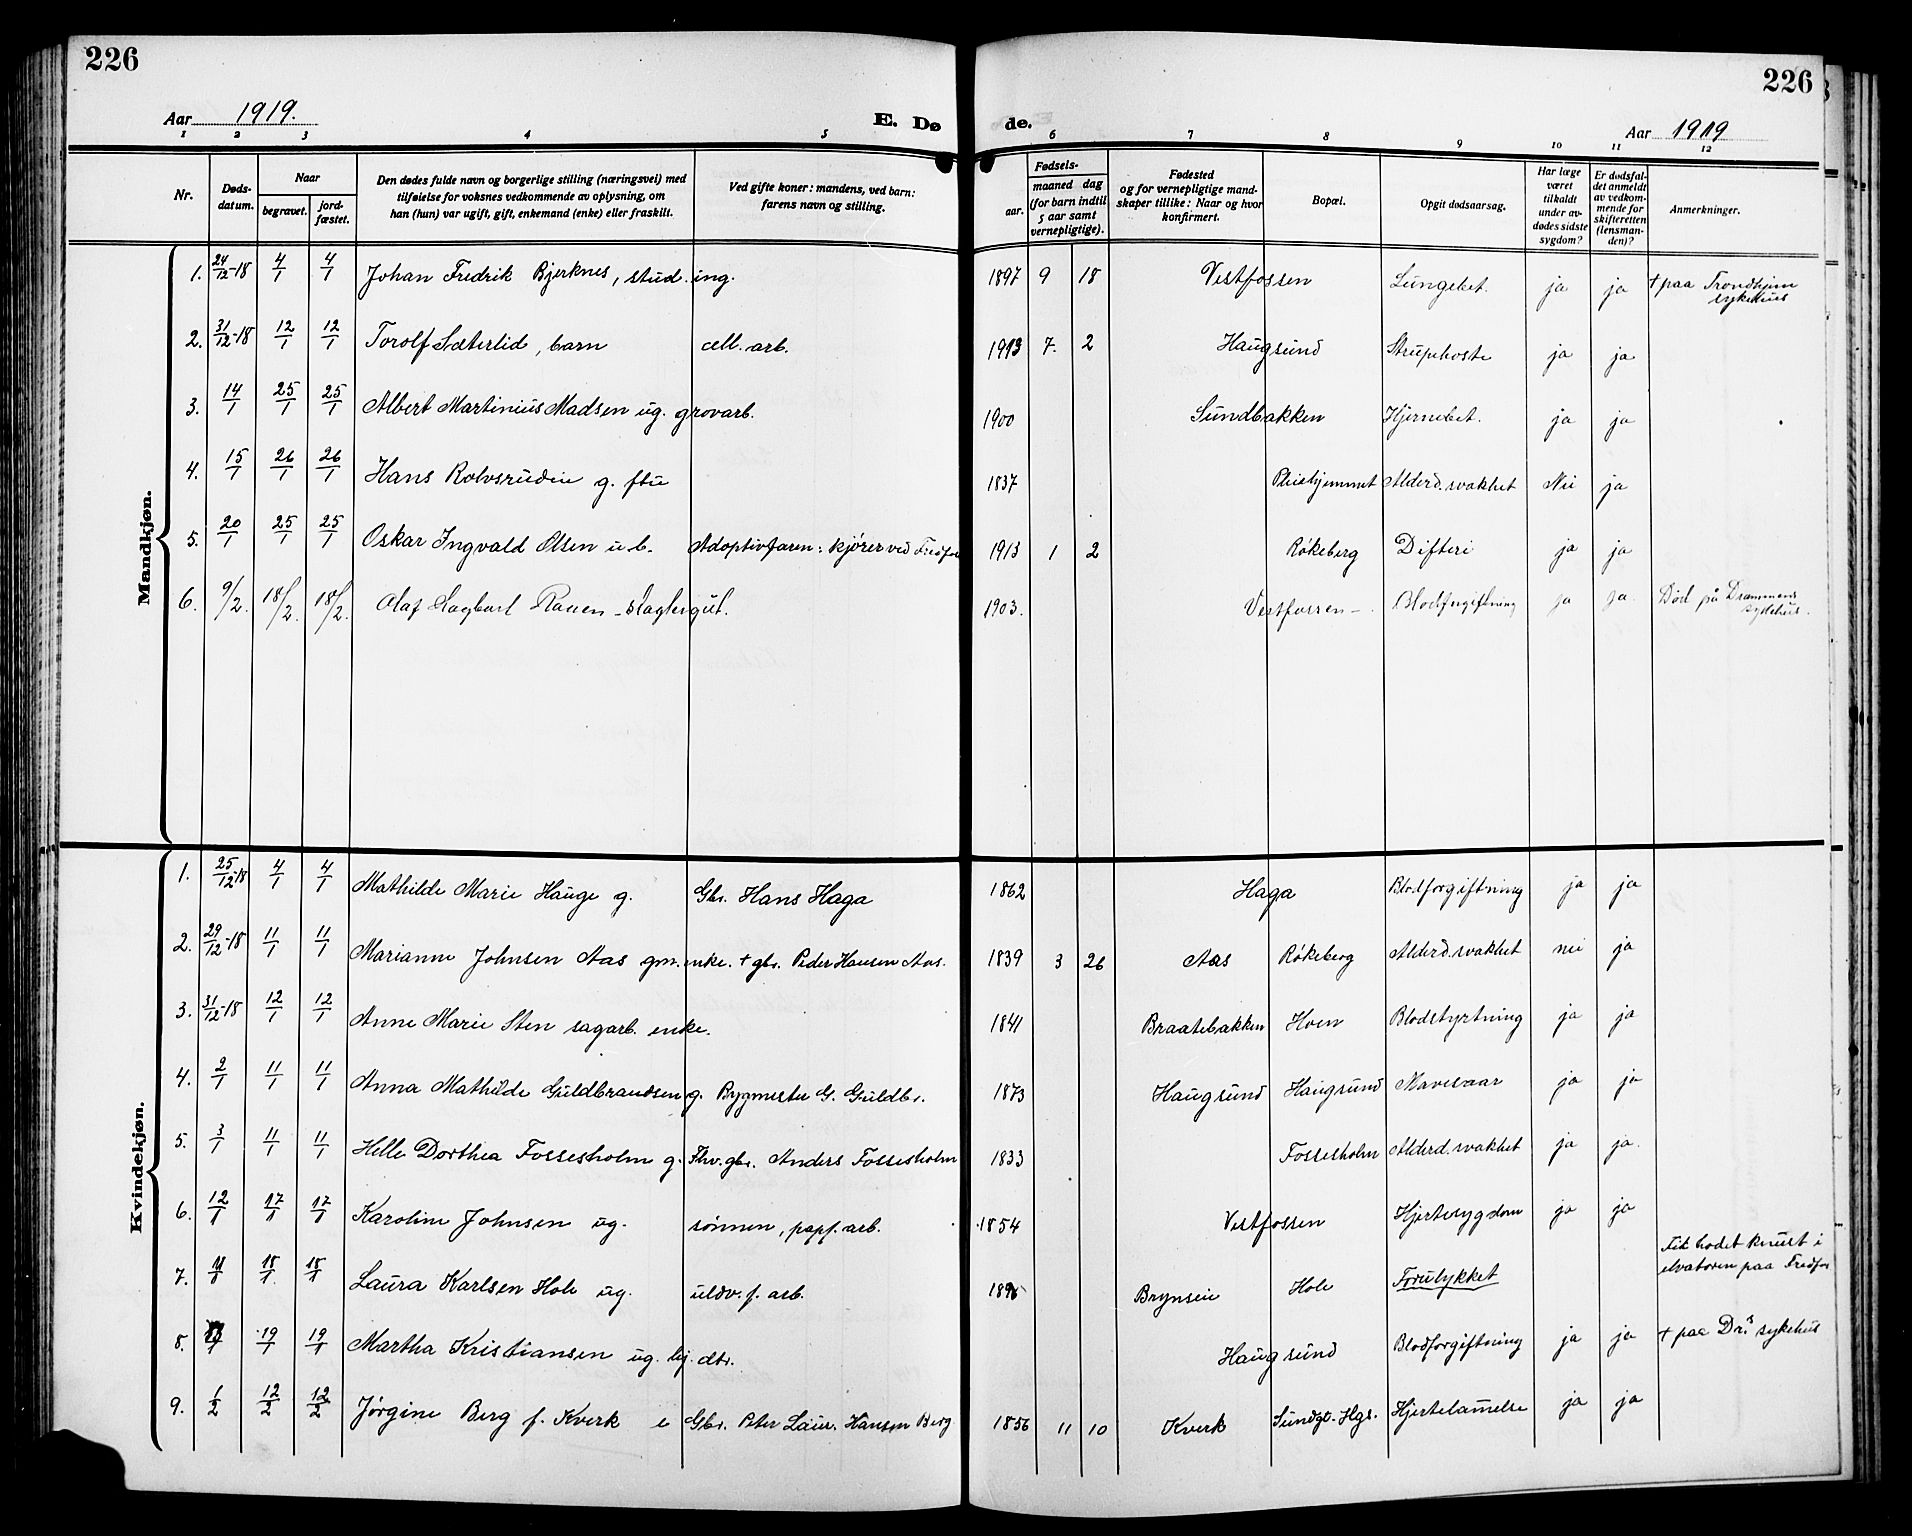 226
226
Aar 1919.
E. Dø
de.
Aar 1919
1 2 3 4 5 6 7 8 9 10 11 12
Nr.
Døds-
datum.
Naar
begravet.
jord-
fæstet.
Den dødes fulde navn og borgerlige stilling (næringsvei) med
tilføielse for voksnes vedkommende av oplysning, om
han (hun) var ugift, gift, enkemand (enke) eller fraskilt.
Ved gifte koner: mandens, ved barn:
farens navn og stilling.
Fødsels-
aar.
maaned dag
(for barn indtil
5 aar samt
vernepligtige).
Fødested
og for vernepligtige mand-
skaper tillike: Naar og hvor
konfirmert.
Bopæl.
Opgit dødsaarsag.
Har læge
været
tilkaldt
under av-
dødes sidste
sygdom?
Er dødsfal-
det anmeldt
av vedkom-
mende for
skifteretten
(lensman-
den)?
Anmerkninger.
Mandkjøn.
1. 24/12-18 4/1 4/1 Johan Fredrik Bjerknes, stud. ing. 1897 9 18 Vestfossen Lungebet. ja ja + paa Trondhjem
sykehus
2. 31/12-18 12/1 12/1 Torolf Sæterlid, barn cell. arb. 1913 7. 2 Haugsund Strupehoste ja ja
3. 14/1 25/1 25/1 Albert Martinius Madsen ug. grovarb. 1900 Sundbakken Hjernebet. ja ja
4. 15/1 26/1 26/1 Hans Rolvsrudeie g. ftu 1837 Pleiehjemmet Alderd.svakhet Nei ja
5. 20/1 25/1 25/1 Oskar Ingvald Olsen u.b. Adoptivfaren: kjører ved Fredfos 1913 1 2 Røkeberg Difteri ja ja
6. 9/2. 18/2. 18/2. Olaf Dagbart Rauen - slagtergut. 1903. Vestfossen - Blodforgiftning ja ja. Død på Drammens
sykehus.
Kvindekjøn.
1. 25/12-18 4/1 4/1 Mathilde Marie Hauge g. Gbr. Hans Haga 1862 Haga Blodforgiftning ja ja
2. 29/12-18 11/1 11/1 Marianne Johnsen Aas gm. enke. + gbr. Peder Hansen Aas. 1839 3 26 Aas Røkeberg Alderd.svakhet nei ja
3. 31/12-18 12/1 12/1 Anne Marie Sten sagarb. enke. 1841 Braatebakken Hoen Blodstyrtning ja ja
4. 2/1 11/1 11/1 Anna Mathilde Guldbrandsen g. Bygmester G. Guldbr. 1873 Haugsund Haugsund Mavesaar ja ja
5. 3/1 11/1 11/1 Helle Dorthea Fossesholm g. Fhv. gbr. Anders Fossesholm 1833 Fossesholm Alderd.svakhet ja ja.
6. 12/1 17/1 17/1 Karoline Johnsen ug. sønnen, papf. arb. 1854 Vestfossen Hjertesygdom ja ja
7. 11/1 18/1. 18/1 Laura Karlsen Hole ug. uldv. f. arb. 1896 Brynseie Hole Forulykket Fik hodet knust i
elvatoren paa Fredfos
8. 19/1 19/1 Martha Kristiansen ug. tj. dtr. Haugsund Blodforgiftning ja ja + paa Dr.s sykehus
9. 1/2 12/2 12/2 Jørgine Berg f. Kverk e Gbr. Peter Laur. Hansen Berg 1856 11 10 Kverk Sundgt. Hgs. Hjertelamelse ja ja